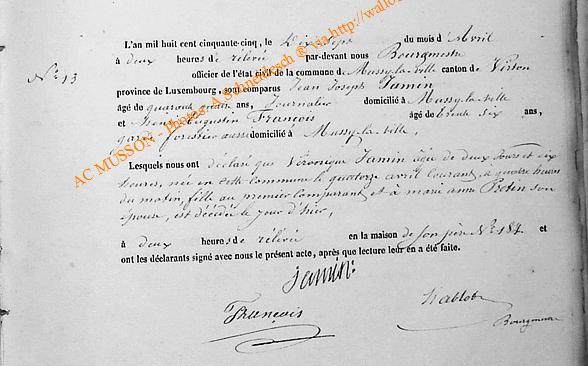 L'an mil huit cent cinquante-cinq, le Dix Sept du mois d'Avril
à deux heures de rélévée par-devant nous Bourgmestre
N° 13
officier de l'état civil de la commune de Mussy-la-ville canton de Virton
province de Luxembourg, sont comparus Jean Joseph Jamin
âgé de quarante quatre ans, Journalier domicilié à Mussy-la-ville
et Henri Augustin François âgé de trente six ans,
garde forestier aussi domicilié à Mussy-la-ville,
Lesquels nous ont déclaré que Véronique Jamin âgée de deux jours et dix
heures, née en cette commune le quatorze avril Courant, à quatre heures
du matin, fille au premier Comparant et à marie anne son
épouse, est décédée le jour d'hier,
à deux heures de rélévée en la maison de son père N° 184 et
ont les déclarants signé avec nous le présent acte, après que lecture leur en a été faite.
Jamin
François
Bourgmestre
AC MUSSON - Photos: A. @ via http://wallo